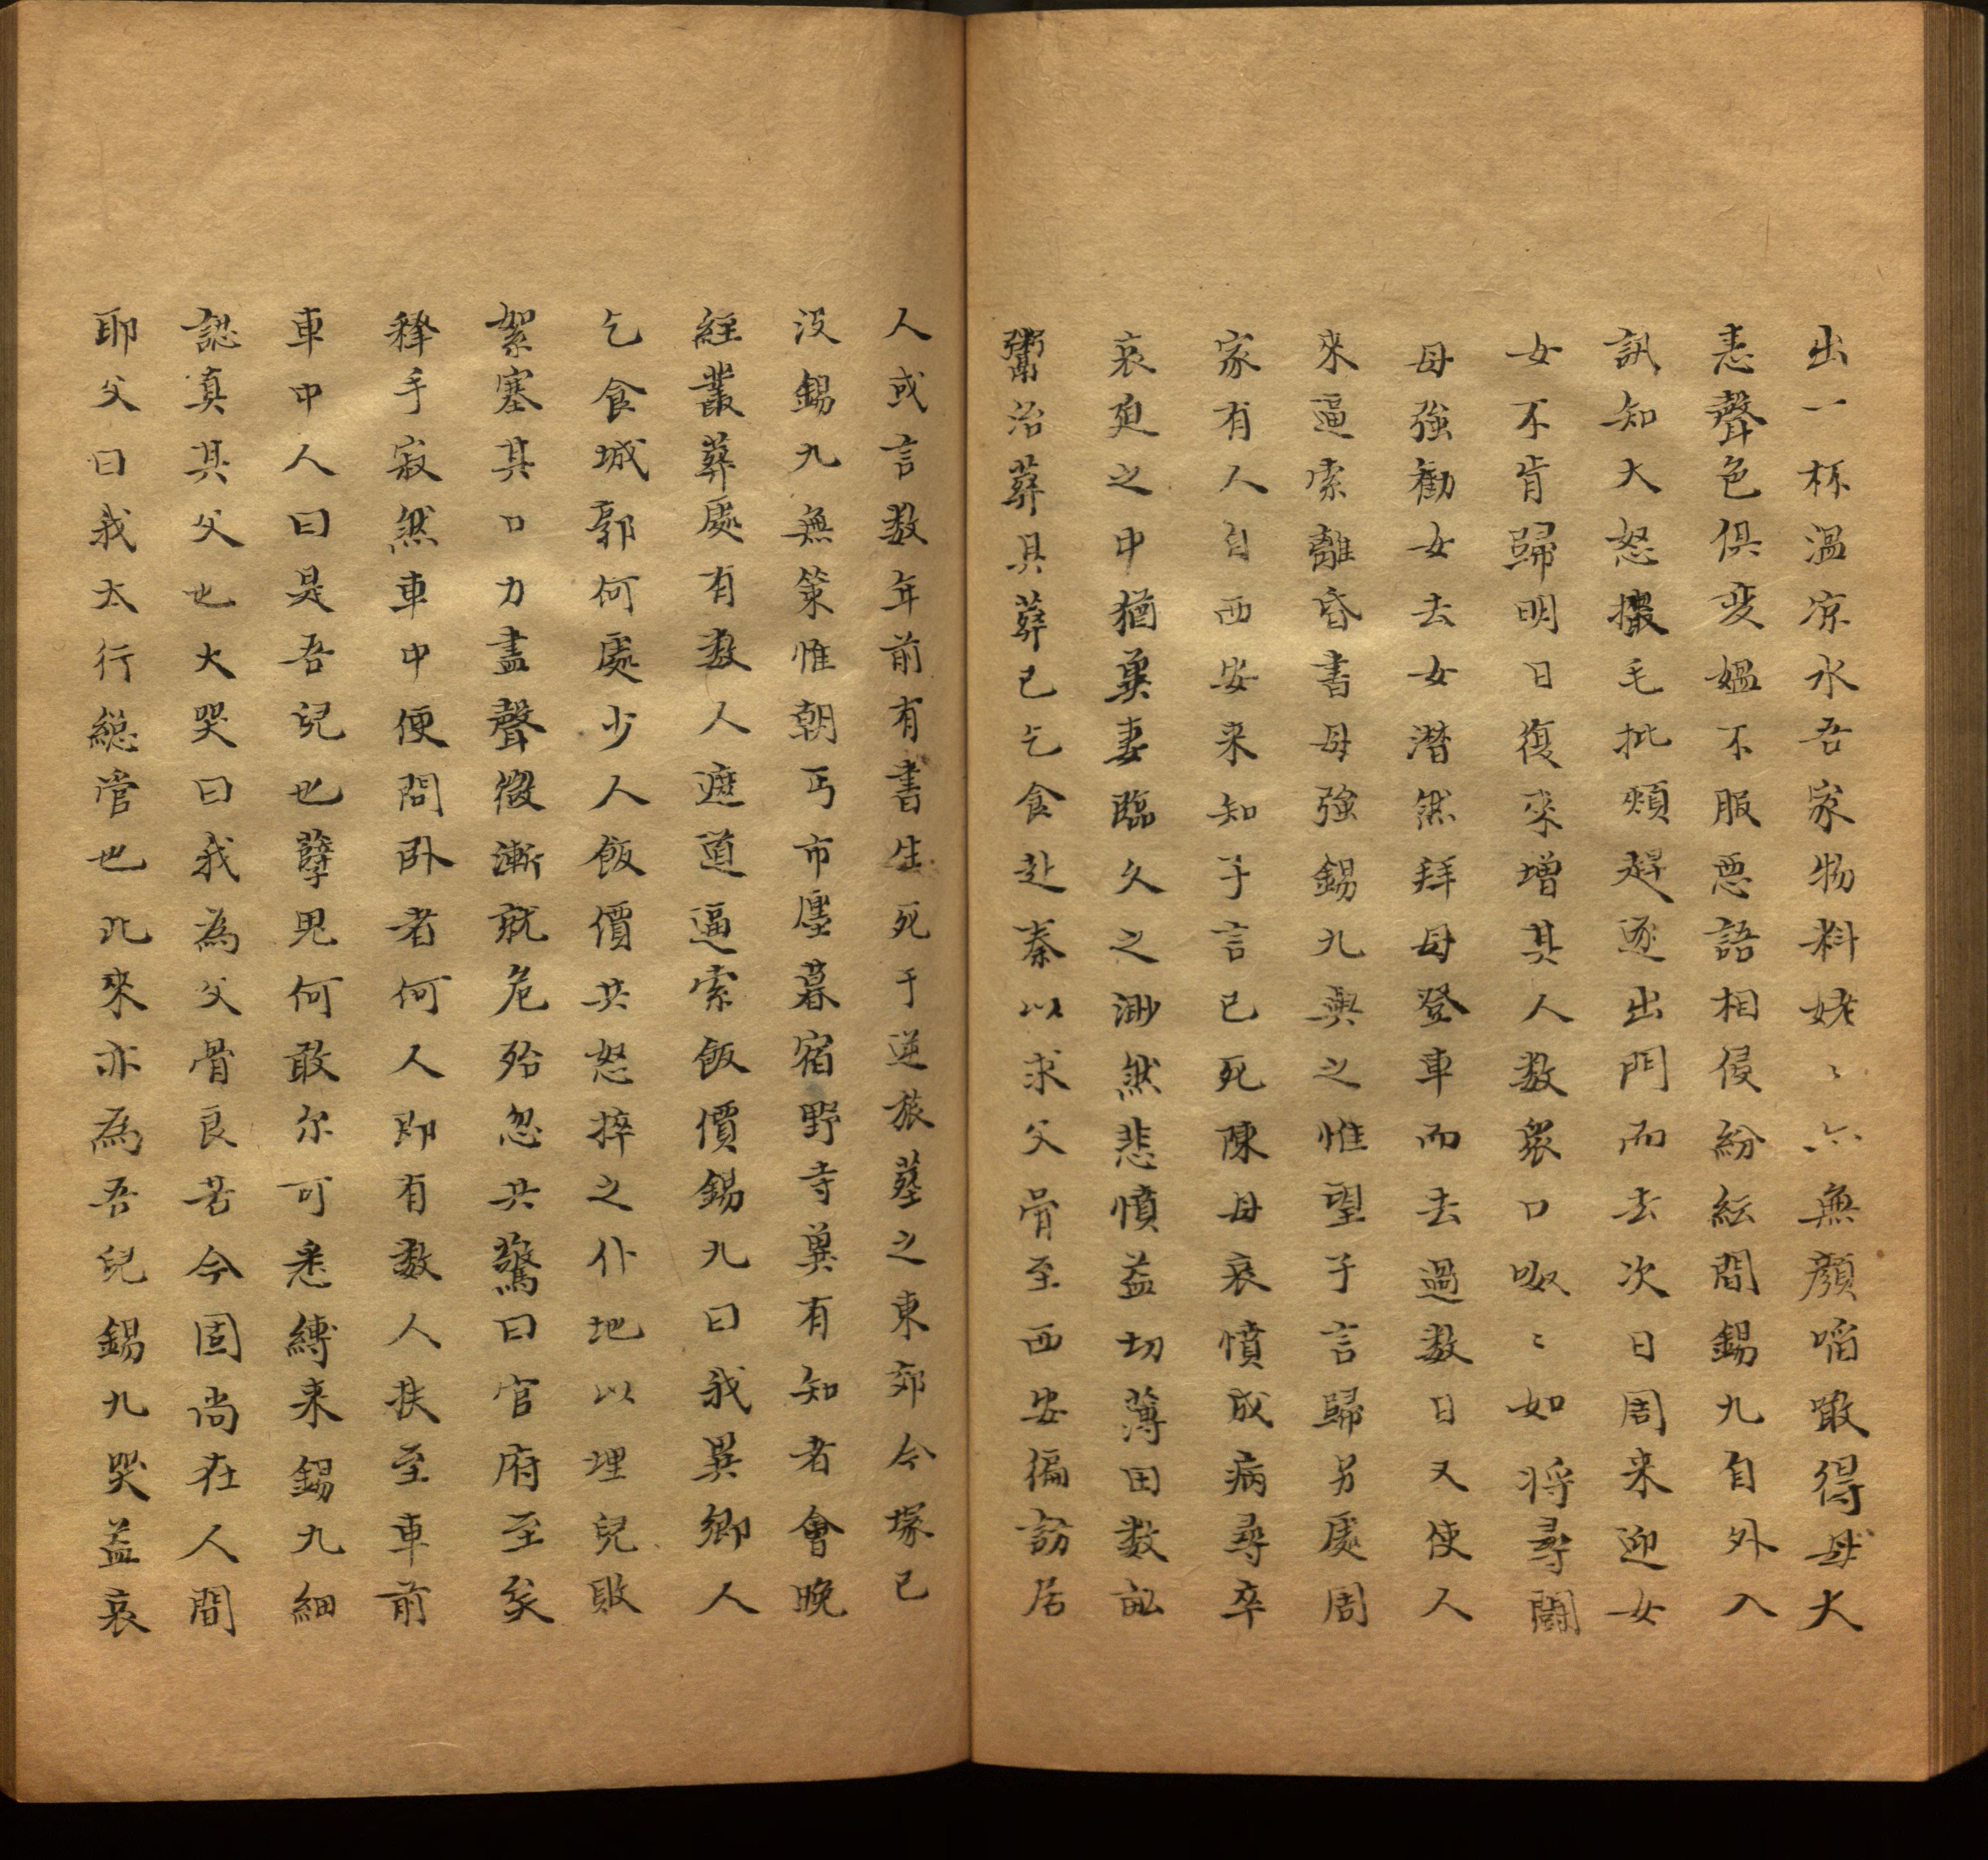 出一杯溫凉水吾家物料姥〻亦無顔啗噉得母大
恚聲色俱变媼不服惡語相侵紛紜間錫九自外入
訊知大怒撮毛批頰趕逐出門而去次日周来迎女
女不肯歸明日復來增其人数衆口呶〻如將尋鬪
母強勸女去女潜然拜母登車而去過数日又使人
來逼索離昏書母強錫九與之惟望子言歸另處周
家有人自西安来知子言已死陳母哀憤成病尋卒
哀廹之中猶兾妻臨久之渺然悲憤益切薄田数畆
鬻治葬具葬已乞食赴秦以求父骨至西安徧訪居
人或言数年前有書生死于逆旅塟之東郊今塚已
没錫九無策惟朝丐市廛暮宿野寺兾有知者會晚
経叢葬處有数人遮道逼索飯價錫九曰我異鄉人
乞食城郭何處少人飯價共怒捽之仆地以埋兒敗
絮塞其口力盡聲微漸就危殆忽共驚曰官府至矣
釋手寂然車中便問卧者何人即有数人扶至車前
車中人曰是吾兒也孽鬼何敢尔可悉縛来錫九細
認真其父也大哭曰我為父骨良苦今固尚在人間
耶父曰我太行総管也此來亦為吾兒錫九哭益哀